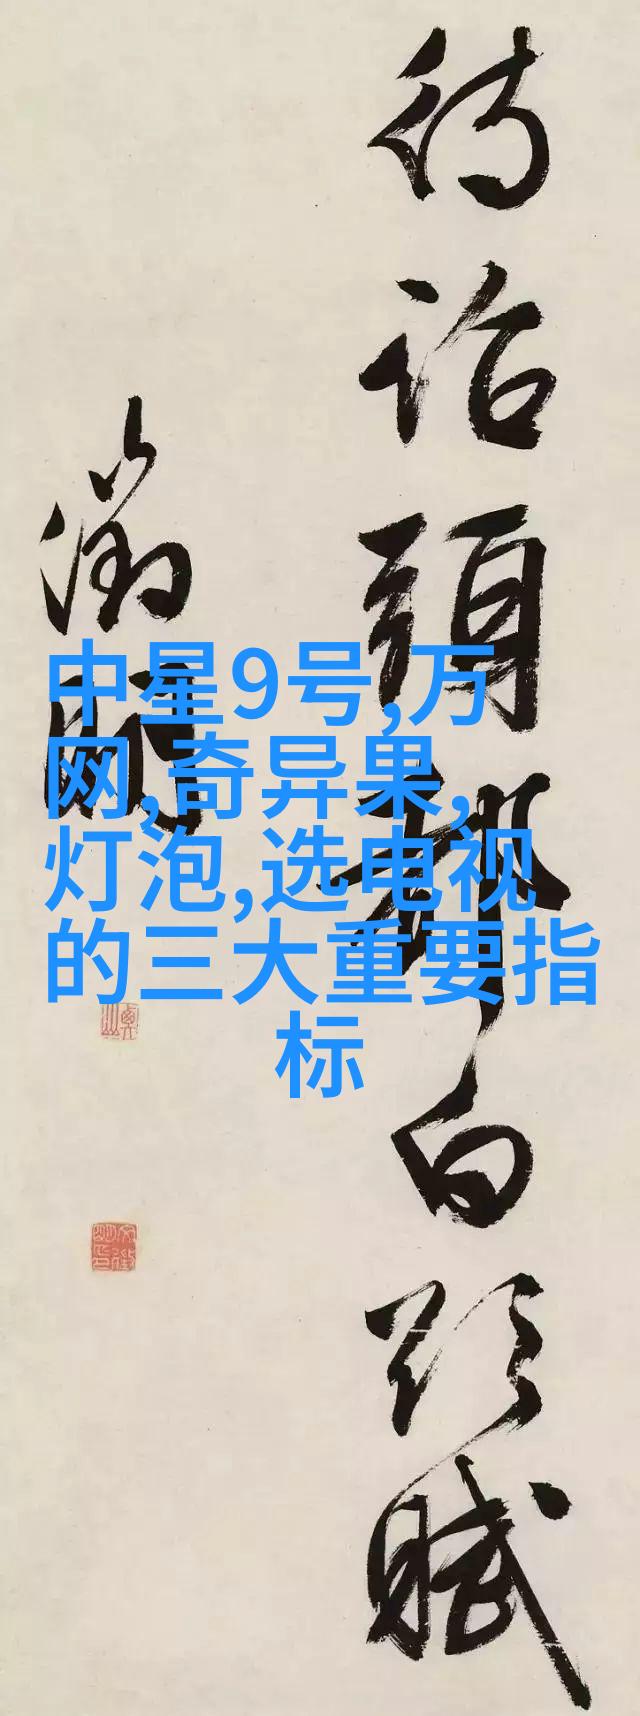 待詔頭都白賦
徵明
中星9号,万
网,奇异果,
灯泡,选电视
的三大重要指
标